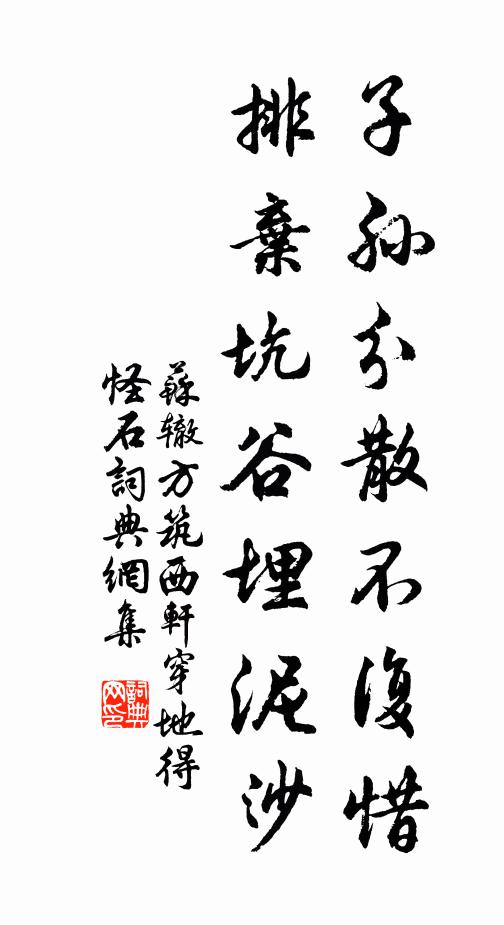 子孙分散不復惜
排棄坑谷埋泥沙
蘇辙方筑西軒穿地得
怪石詞典網集
詞典
网印